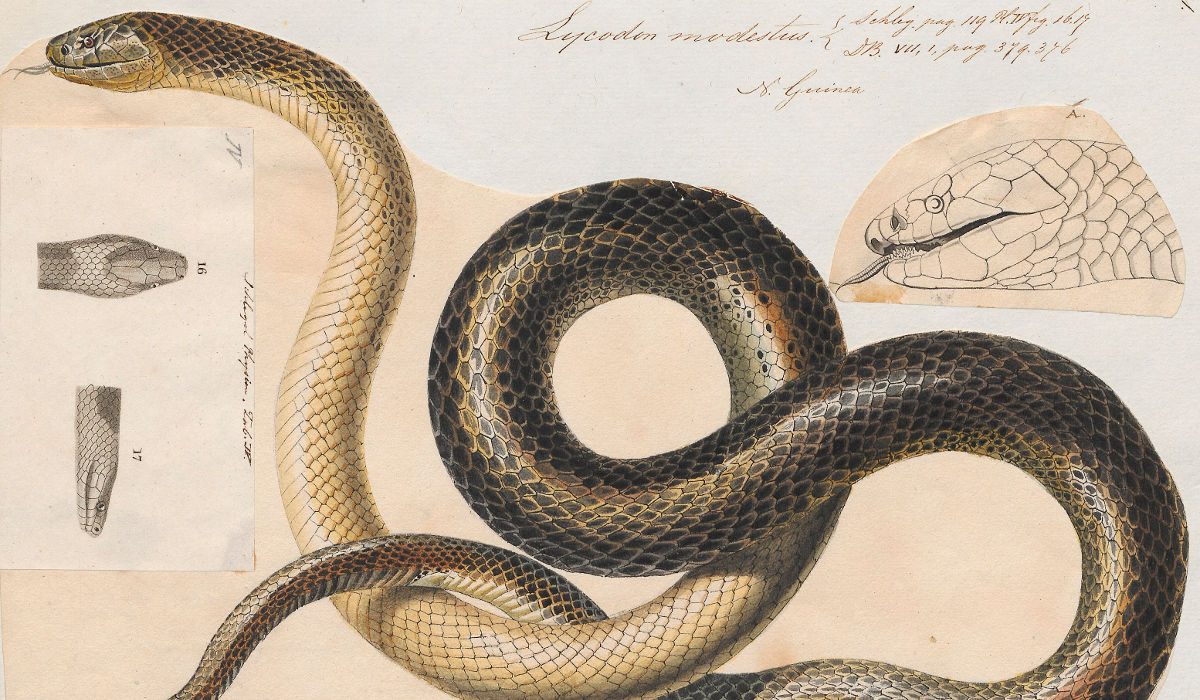 Lycodon modestus. { Schleg. pag. 119 Pl. IV fig. 16. 17
DB. VII, 1, pag. 379. 376
N. Guinea
A.
IV
16
Schlegel Physion. Tab. IV
17